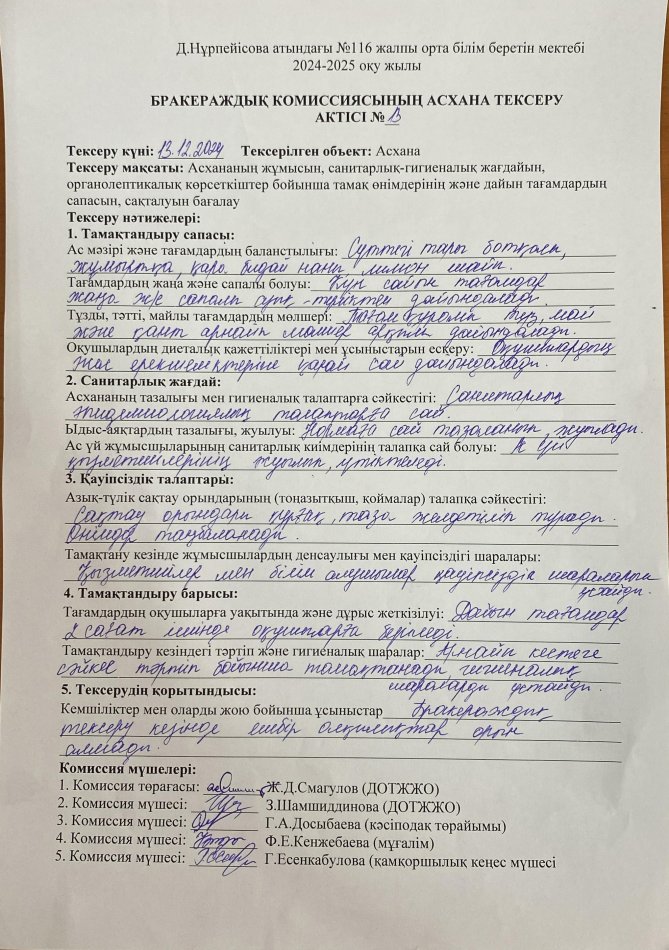 Д.Нұрпейісова атындағы №116 жалпы орта білім беретін мектебі
2024-2025 оқу жылы
БРАКЕРАЖДЫҚ КОМИССИЯСЫНЫҢ АСХАНА ТЕКСЕРУ
АКТІСІ №
Тексеру күні: 13.12.2024 Тексерілген объект: Асхана
Тексеру мақсаты: Асхананың жұмысын, санитарлық-гигиеналық жағдайын,
органолептикалық көрсеткіштер бойынша тамақ өнімдерінің және дайын тағамдардың
сапасын, сақталуын бағалау
Тексеру нәтижелері:
1. Тамақтандыру сапасы:
Ас мәзірі және тағамдардың баланстылығы: Сүттегі тары ботқасы,
жұмыртқа, қара бидай наны лимон шайы.
Тағамдардың жаңа және сапалы болуы: Күн сайын тағамдар
жаңа ж/е сапалы азық-түліктен дайындалады.
Тұзды, тәтті, майлы тағамдардың мөлшері: Тағам құрамы тұз, май
және қант арнайы мөлшер арқылы дайындалады.
Оқушылардың диеталық қажеттіліктері мен ұсыныстарын ескеру: Оқушылардың
жас ерекшеліктеріне қарай сай дайындалады.
2. Санитарлық жағдай:
Асхананың тазалығы мен гигиеналық талаптарға сәйкестігі: Санитарлық
эпидемиологиялық талаптарға сай.
Ыдыс-аяқтардың тазалығы, жуылуы: Нормаға сай тазаланып, жуылады.
Ас үй жұмысшыларының санитарлық киімдерінің талапқа сай болуы: үй
қызметкерлерінің жуылып, үтіктеледі.
3. Қауіпсіздік талаптары:
Азық-түлік сақтау орындарының (тоңазытқыш, қоймалар) талапқа сәйкестігі:
Сақтау орындары құрғақ, таза желдетіліп тұрады.
Өнімдер таңбаланады.
Тамақтану кезінде жұмысшылардың денсаулығы мен қауіпсіздігі шаралары:
Қызметкерлер мен білім алушылар қауіпсіздік шараларын
ұстайды.
4. Тамақтандыру барысы:
Тағамдардың оқушыларға уақытында және дұрыс жеткізілуі: Дайын тағамдар
2 сағат ішінде оқушыларға беріледі.
Тамақтандыру кезіндегі тәртіп және гигиеналық шаралар: Арнайы кестеге
сәйкес тәртіп бойынша тамақтанады гигиеналық
шараларды ұстайды.
5. Тексерудің қорытындысы:
Кемшіліктер мен оларды жою бойынша ұсыныстар Бракераждық
тексеру кезінде ешбір олқылықтар орын
алмады.
Комиссия мүшелері:
1. Комиссия төрағасы: Ж.Д.Смагулов (ДОТЖЖО)
2. Комиссия мүшесі: З.Шамшиддинова (ДОТЖЖО)
3. Комиссия мүшесі: Г.А.Досыбаева (кәсіподақ төрайымы)
4. Комиссия мүшесі: Ф.Е.Кенжебаева (мұғалім)
5. Комиссия мүшесі: Г.Есенкабулова (қамқоршылық кеңес мүшесі